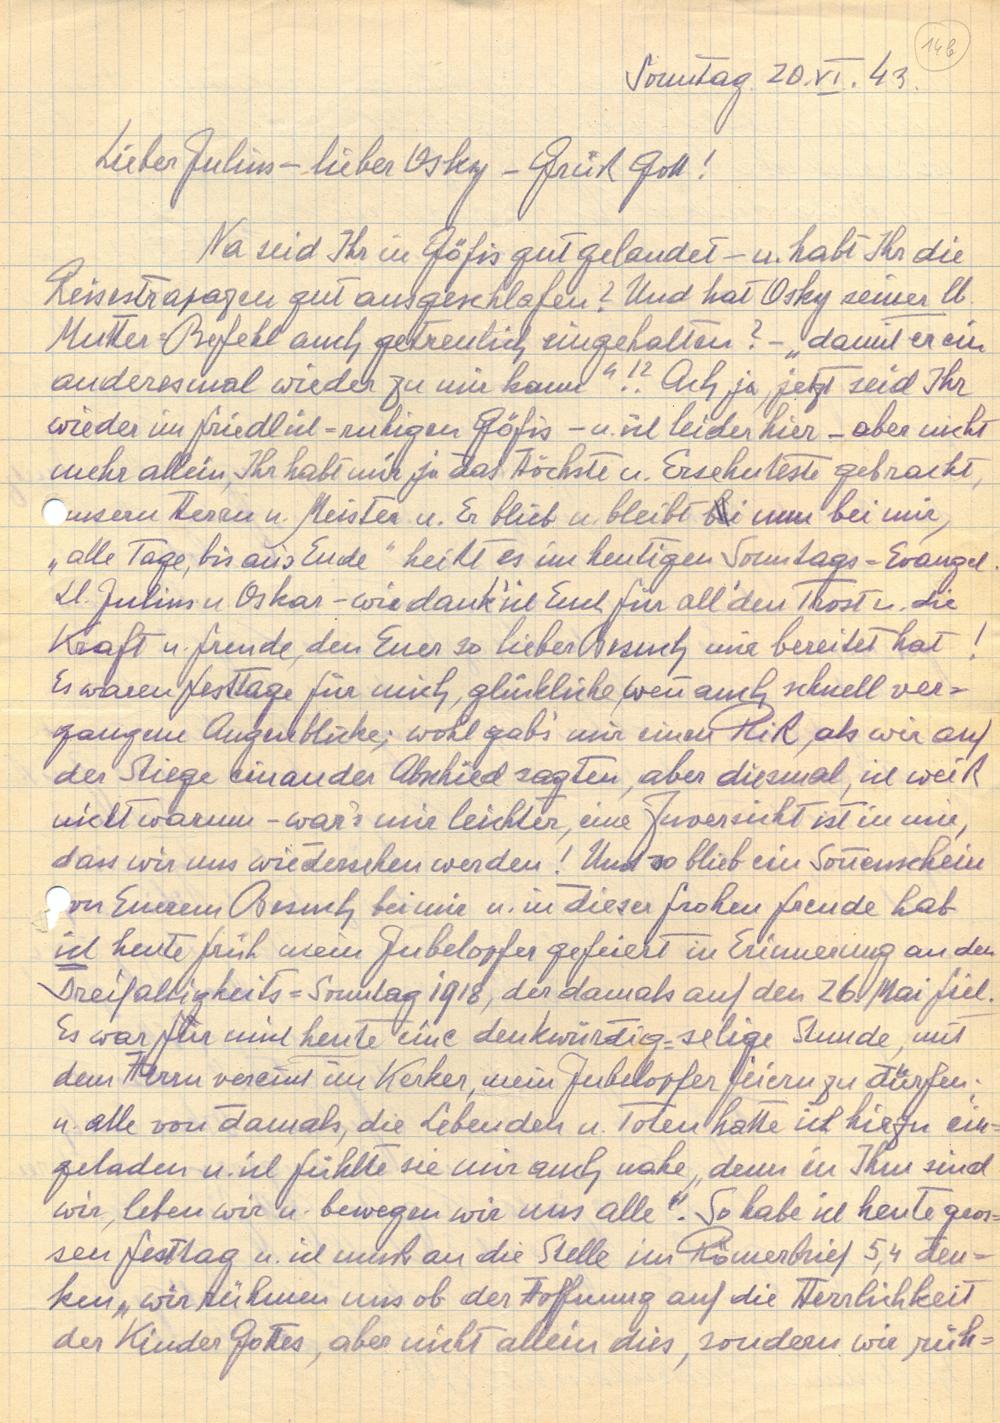 14b
Sonntag 20.VI.43.
Lieber Julius – lieber Osky – Grüß Gott!
Na seid Ihr in Göfis gut gelandet – u. habt Ihr die
Reisestrapazen gut ausgeschlafen? Und hat Osky seiner lb.
Mutter=Befehl auch getreulich eingehalten? – „damit er ein
anderesmal wieder zu mir kann"!? Ach ja, jetzt seid Ihr
wieder im friedlich=ruhigen Göfis – u. ich leider hier – aber nicht
mehr allein, Ihr habt mir ja das Höchste u. Ersehnteste gebracht,
unsern Herrn u. Meister u. Er blieb u. bleibt nun bei mir,
„alle Tage, bis ans Ende" heißt es im heutigen Sonntags-Evangel.
Lb. Julius u. Oskar – wie dank' ich Euch für all' den Trost u. die
Kraft u. Freude, den Euer so lieber Besuch mir bereitet hat!
Es waren Festtage für mich, glückliche, wen̄ auch schnell ver=
gangene Augenblicke; wohl gab's mir einen Riß, als wir auf
der Stiege einander Abschied sagten, aber diesmal, ich weiß
nicht warum – war's mir leichter, eine Zuversicht ist in mir,
dass wir uns wiedersehen werden! Und so blieb ein Son̄enschein
von Euerem Besuch bei mir u. in dieser frohen Freude hab
ich heute früh mein Jubelopfer gefeiert in Erinnerung an den
Dreifaltigkeits=Sonntag 1918, der damals auf den 26. Mai fiel.
Es war für mich heute eine denkwürdig=selige Stunde, mit
dem Herrn vereint im Kerker, mein Jubelopfer feiern zu dürfen;
u. alle von damals, die Lebenden u. Toten hatte ich hiezu ein=
geladen u. ich fühlte sie mir auch nahe, „denn in Ihm sind
wir, leben wir u. bewegen wir uns alle". So habe ich heute gros=
sen Festtag u. ich muß an die Stelle im Römerbrief 5,4 den=
ken „wir rühmen uns ob der Hoffnung auf die Herrlichkeit
der Kinder Gottes, aber nicht allein dies, sondern wir rüh=